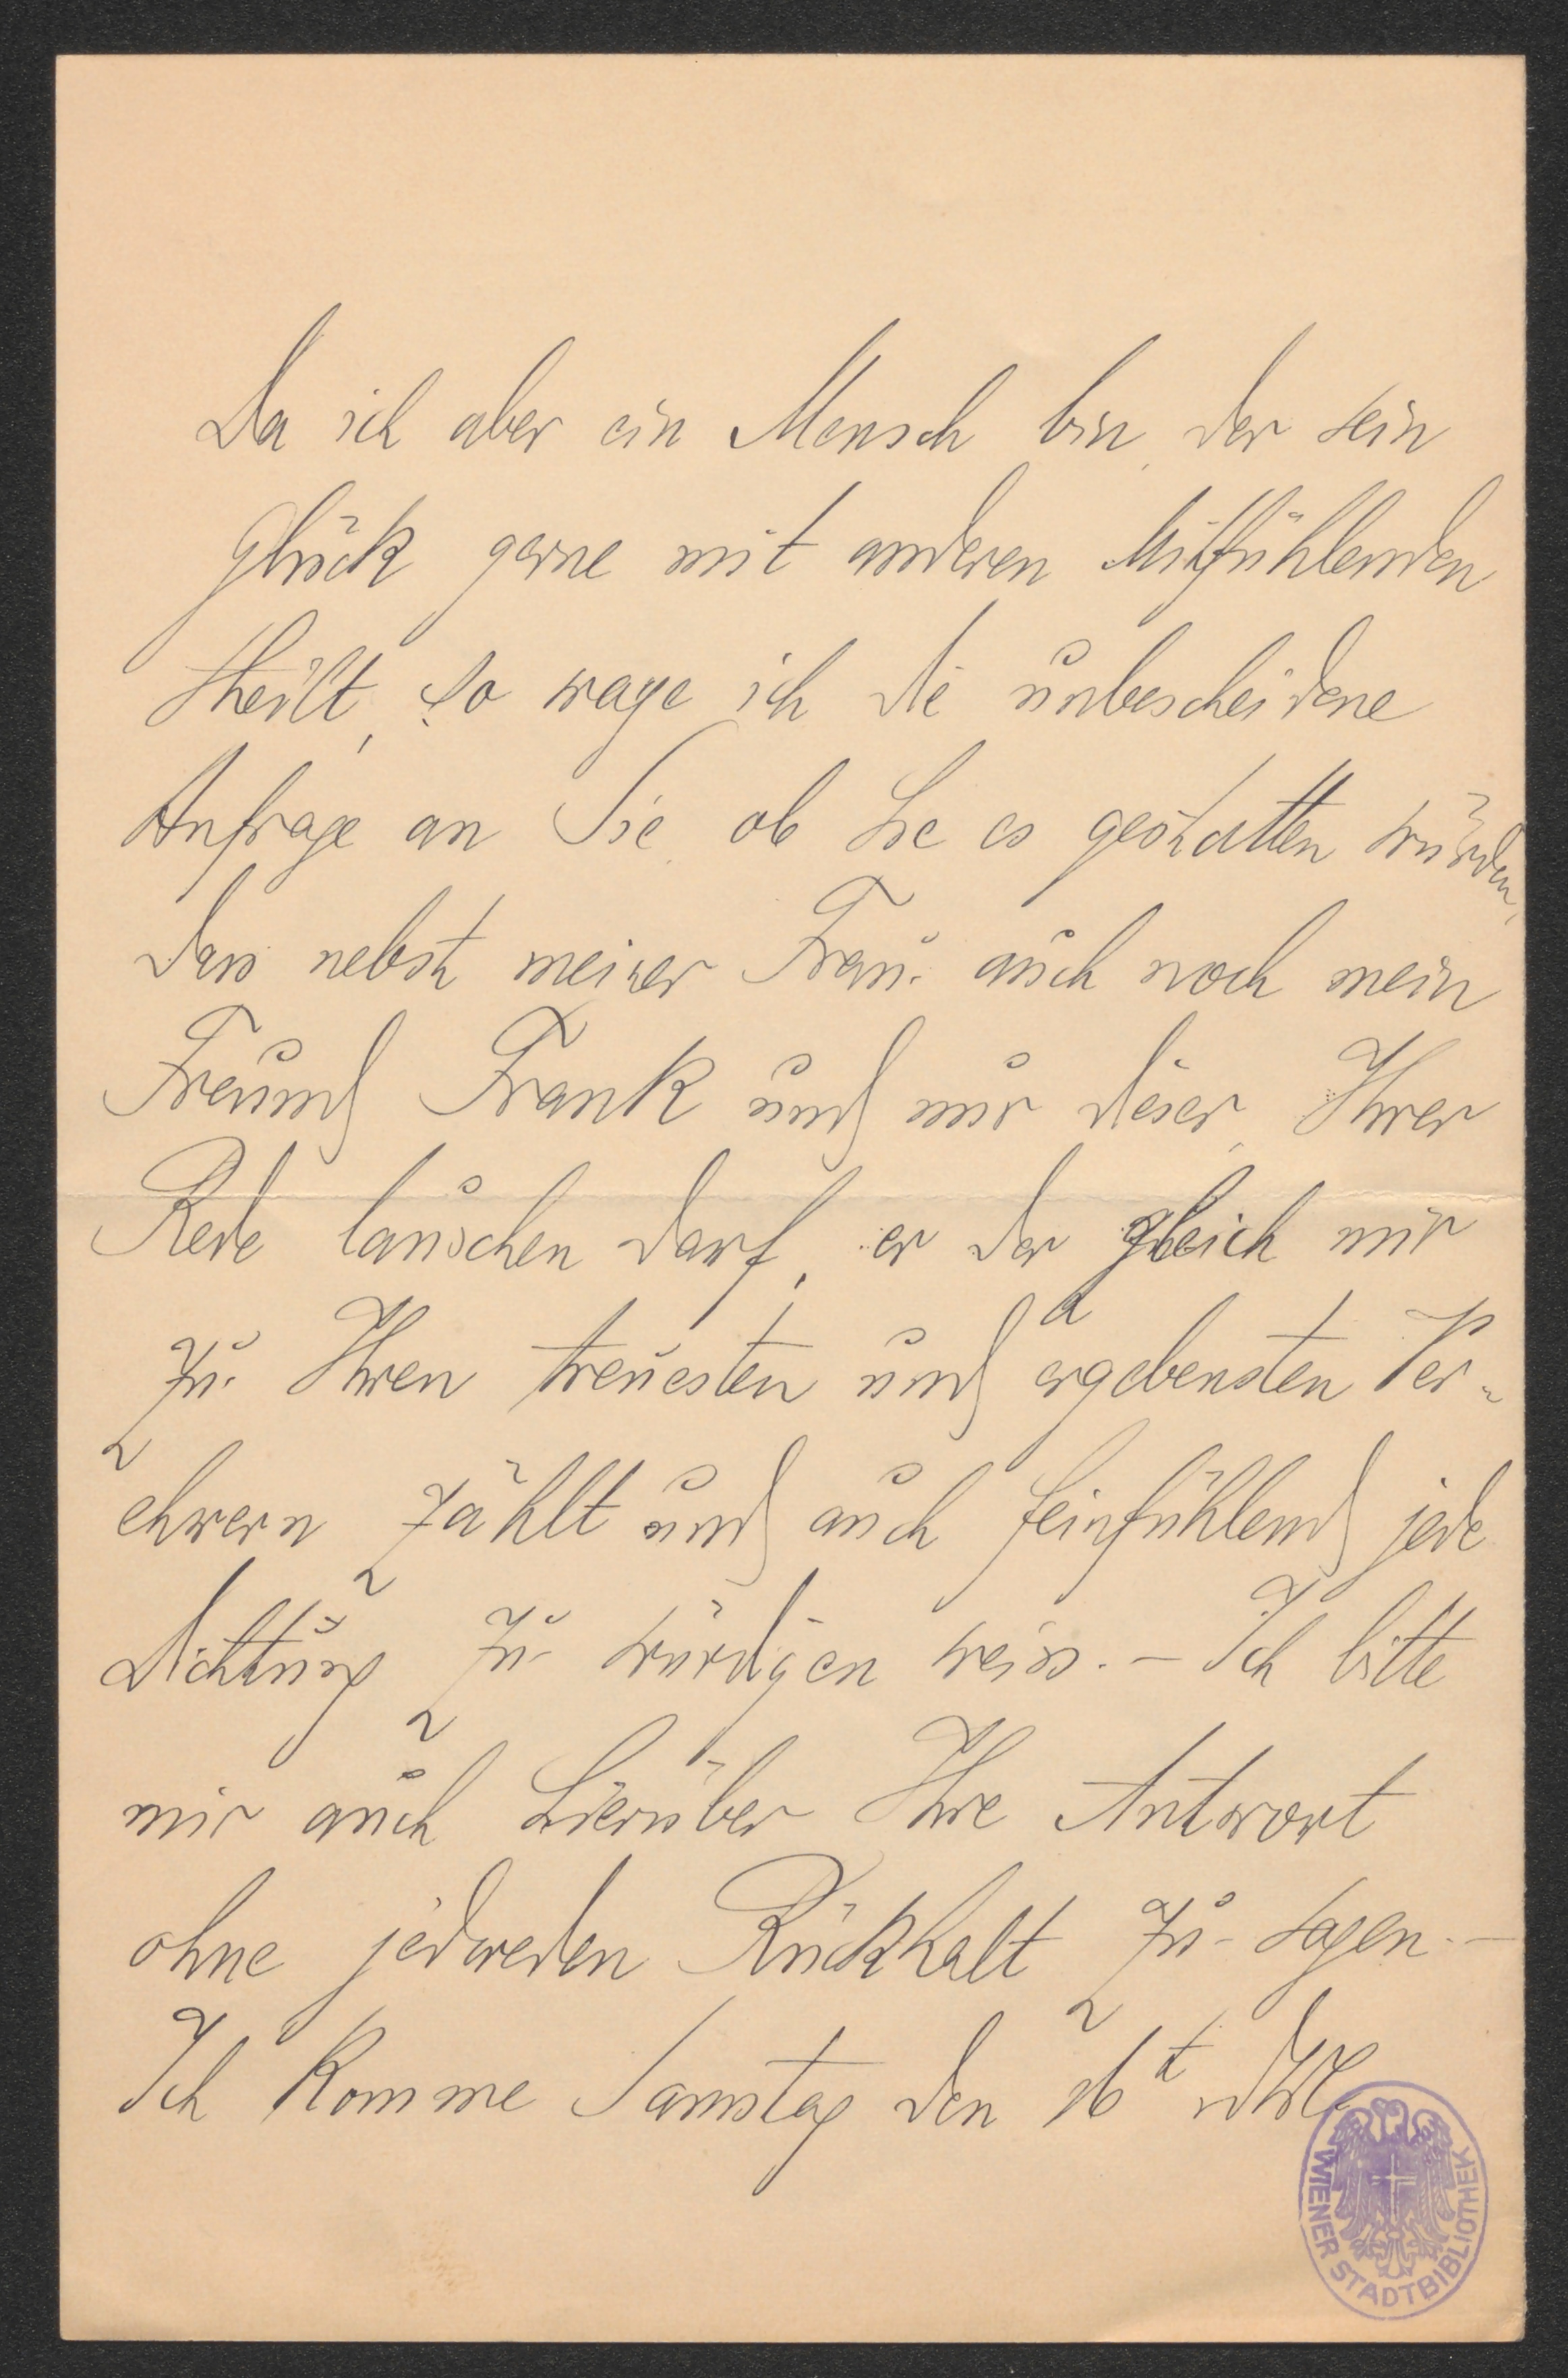 Da ich aber ein Mensch bin, der sein
Glück gerne mit anderen Mitfühlenden
theilt, so wage ich die unbescheidene
Anfrage an Sie, ob Sie es gestatten würden,
dass nebst meiner Frau auch noch mein
Freund Frank und nur dieser, Ihrer
Rede lauschen darf, er der gleich mir
zu Ihren treuesten und ergebensten Ver-
ehrern zählt und auch feinfühlend jede
Dichtung zu würdigen weiss. – Ich bitte
mir auch hierüber Ihre Antwort
ohne jedweden Rückhalt zu sagen. –
Ich komme Samstag den 16t
WIENER STADTBIBLIOTHEK